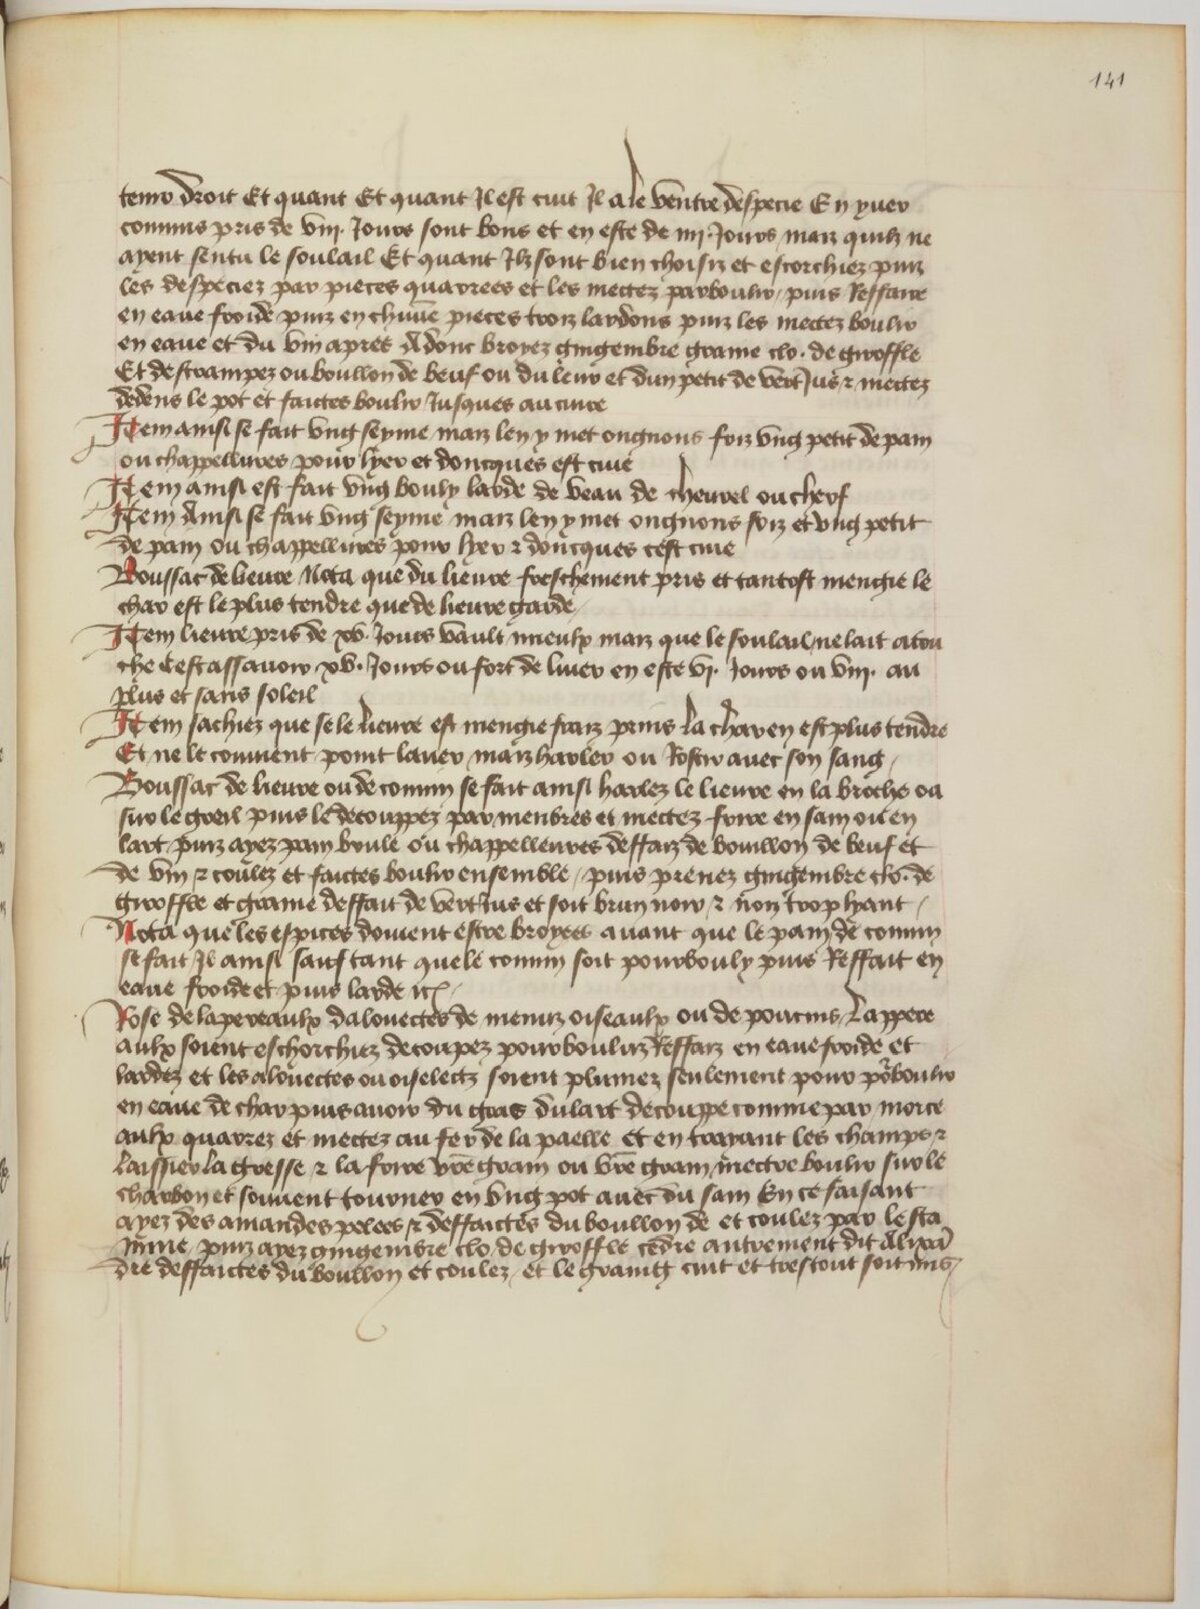 141
tenir droit Et quant Et quant Il est cuit Il a le ventre despecie En yver
connins pris de viii. Jours sont bons et en este de iiii. Jours maiz quilz ne
ayent sentu le soulail Et quant Ilz sont bien choisiz et escorchiez puiz
les despeciez par pieces quarrees et les mectez parboulir, puis Reffaire
en eaue froide puiz en chūne pieces troiz lardons puiz les mectez boulir
en eaue et du vin apres Adonc broyez gingembre graine clo. de giroffle
Et destrampez ou boullon de beuf ou du leur et dun petit de vert Jus & mectez
dedens le pot et faictes boulir Jusques au cuire
Item ainsi se fait ung seyme maiz len y met ongnons friz ung petit de pain
ou chappellures pour lyer et doncques est cive
Item ainsi est fait ung bouly larde de veau de chevrel ou cherf
Item Ainsi se fait ung seyme maiz len y met ongnons friz et ung petit
de pain ou chappellures pour lyer & doncques cest cive
Boussac de lievre Nota que du lievre freschement pris et tantost mengie le
char est le plus tendre que de lievre garde
Item lievre pris de xv. Jours vault mieulx maiz que le soulail ne lait atou
che Cest assavoir xv. Jours ou fort de liver en este vi. Jours ou viii. au
plus et sans soleil
Item sachiez que se le lievre est mengie fraiz prins la char en est plus tendre
Et ne le convient point laver maiz harler ou Rostir avec son sang
Boussac de lievre ou de connin se fait ainsi harlez le lievre en la broche ou
sur le greil puis le decouppez par menbres et mectez frire en sain ou en
lart puiz ayez pain brule ou chappelleures deffaiz de bouillon de beuf et
de vin & coulez et faictes boulir ensemble, puis prenez gingembre clo. de
giroffle et graine deffait de vert Jus et soit brun noir & non trop lyant
Nota que les espices doivent estre broyees avant que le pain de connin
se fait Il ainsi sauf tant que le connin soit pourbouly puis Reffait en
eaue froide et puis larde etc
Rose de lapereaulx dalouectes de menuz oiseaulx ou de poucins Lappere
aulx soient eschorchiez decoupez pourbouluz Reffaiz en eaue froide et
lardez et les alouectes ou oiselectz soient plumez seulement pour pōboulir
en eaue de char puis avoir du gras du lart decouppe comme par morce
aulx quarrez et mectez au fer de la paelle et en trayant les champs &
laissier la gresse & la frire vr̄e grain ou vr̄e grain mectre boulir sur le
charbon et souvent tourner en ung pot avec du sain En ce faisant
ayez des amandes pelees & deffaictes du boullon de et coulez par lesta
mine, puiz ayez gingembre clo, de giroffle cedre autrement dit Alixā
dre deffaictes du boullon et coulez, et le graing cuit et trestout soit mis